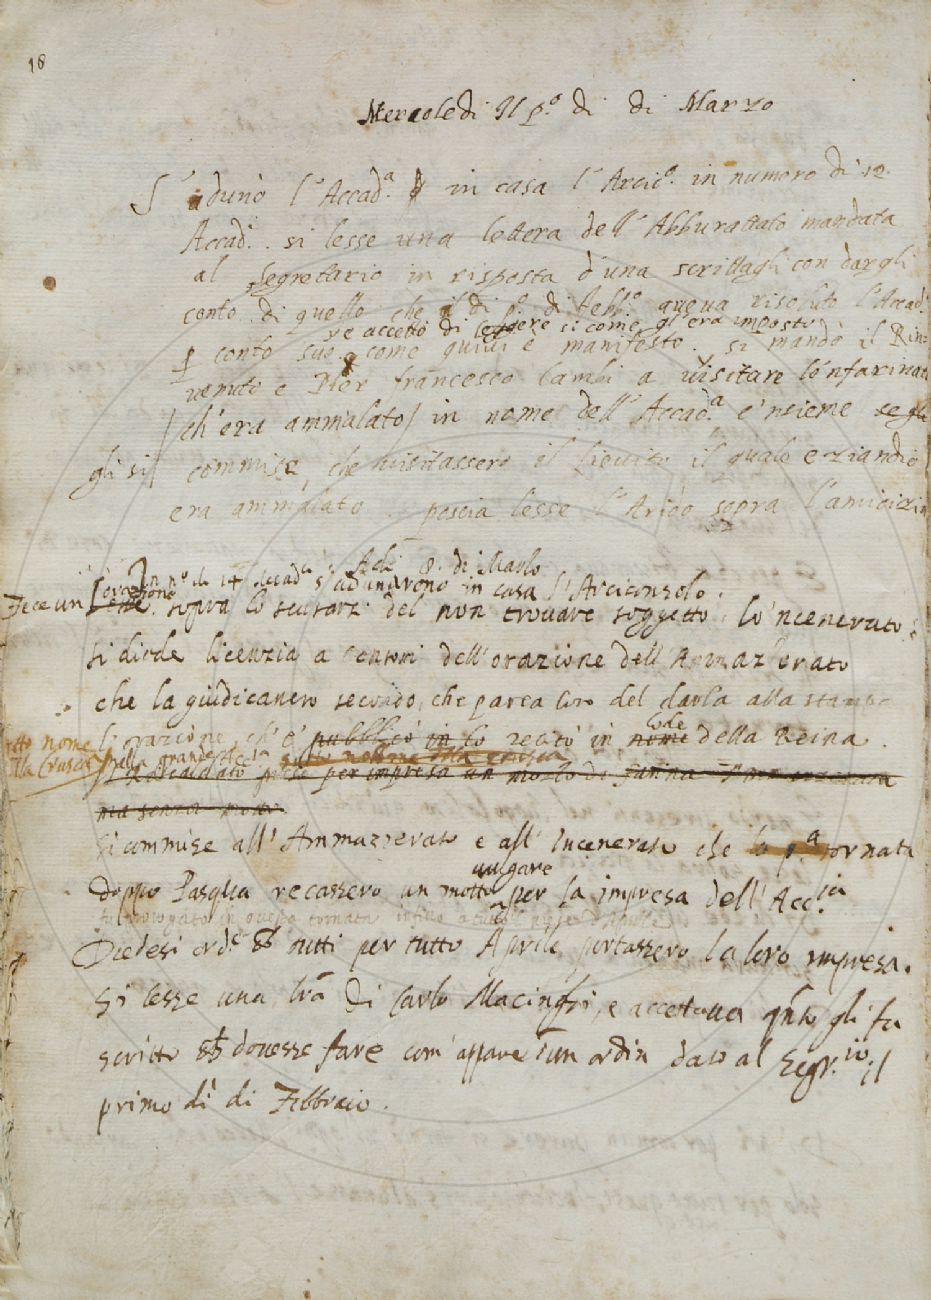 18
Mercoledi Il p.º di di Marzo
S' adunò l'Accad.ª in casa l'Arcic.º in numero di 12
Accad. . si lesse una lettera dell'Abburattato mandata
al Segretario in risposta d'una scrittagli con dargli
conto di quello che il di p.º di Febb.º aveva risoluto l'Accad.ª
ve accettò di leggere si come gl'era imposto
p conto suo come quivi è manifesto. si mandò il Rin
venuto e Pier francesco Cambi a visitare lo'nfarinato
/ch'era ammalato/ in nome dell'Accad.ª e'nsieme se gli
gli si/ commise, che visitassero il Lievito il quale eziandio
era ammalato . poscia lesse l'Arido sopra l'amicizia
Adi 8. di Marzo
In nº di 14 Accad.ci s'adunarono in casa l'Arciconsolo.
Fece un'orazione
Lesse sopra lo scusarsi del non trovare soggetto lo'ncenerato:
si diede licenzia a Censori dell'orazione dell'Ammazzerato
che la giudicassero secondo, che parea loro del darla alla stampa
lode
l'orazione ch'e' pubblicò in lo recitò in nome della Reina.
sotto nome
della Crusca
sotto nome della crusca
per impresa un mo di farina
ma senza motto.
Si commise all'Ammazzerato e all'Incenerato che la p.ª tornata
vulgare
doppo Pasqua recassero un motto per la impresa dell'Acc.ia
in questa tornata infino a tutto
Diedesi ord.e tutti per tutto Aprile portassero la loro impresa.
Si lesse una lrã di Carlo Macinghi, e accettava qnto gli fu
scritto dovesse fare com'appare un ordin dato al Segr.rio il
primo dì di Febbraio.